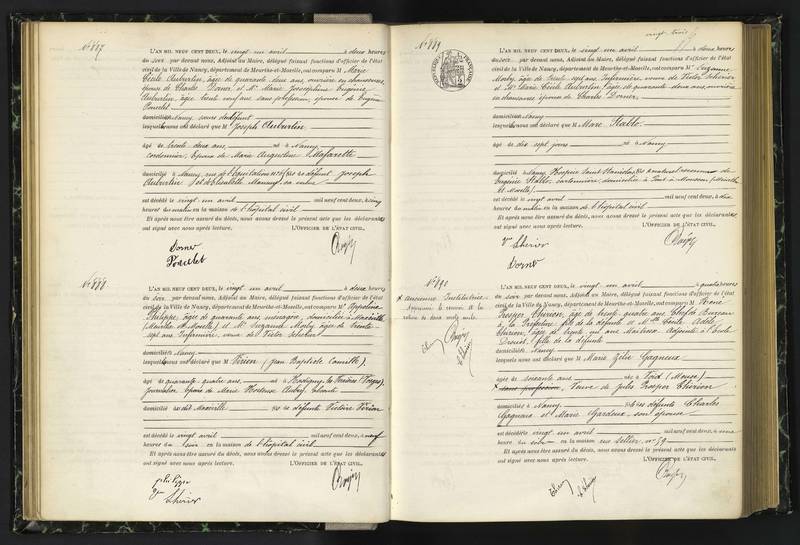 N° 887
L'AN MIL NEUF CENT DEUX, le vingt un avril à deux heures
du soir par devant nous, Adjoint au Maire, délégué faisant fonctions d'officier de l'état
civil de la Ville de Nancy, département de Meurthe-et-Moselle, ont comparu M Marie
Cécile Auburtin, âgée de quarante deux ans, ouvrière en chaussures
épouse de Charles Dorner et M Marie Joséphine Eugénie
Auburtin, âgée trente neuf ans sans profession, épouse de Eugène
domiciliés Nancy
lesquels nous ont déclaré que M Joseph Auburtin
âgé de trente deux ans né à Nancy
cordonnier, époux de Marie Augustine
domicilié à Nancy, rue de l'Equitation fils de défunt Joseph
Auburtin et d'Elisabeth sa veuve
est décédé le vingt un avril mil neuf cent deux, à cinq
heures du matin en la maison de l'hôpital civil
Et après nous être assuré du décès, nous avons dressé le présent acte que les déclarants
ont signé avec nous après lecture. L'OFFICIER DE L'ÉTAT CIVIL,
Dorner
N° 888
L'AN MIL NEUF CENT DEUX, le vingt un avril à deux heures
du soir par devant nous, Adjoint au Maire, délégué faisant fonctions d'officier de l'état
civil de la Ville de Nancy, département de Meurthe-et-Moselle, ont comparu M
Philippe, âgée de quarante ans, ménagère, domiciliée à Maxéville
(Meurthe et Moselle) et M Suzanne Morby âgée de trente
sept ans Infirmière, veuve de Victor
domiciliés Nancy
lesquels nous ont déclaré que M Virion (Jean Baptiste Camille)
âgé de quarante quatre ans né à (Vosges)
journalier époux de Marie Hortense Aubry
domicilié à Maxéville fils de défunte Victoire Virion
est décédé le vingt avril mil neuf cent deux, à neuf
heures du soir en la maison de l'hôpital civil
Et après nous être assuré du décès, nous avons dressé le présent acte que les déclarants
ont signé avec nous après lecture. L'OFFICIER DE L'ÉTAT CIVIL,
vingt trois
N° 889
L'AN MIL NEUF CENT DEUX, le vingt un avril à deux heures
du soir par devant nous, Adjoint au Maire, délégué faisant fonctions d'officier de l'état
civil de la Ville de Nancy, département de Meurthe-et-Moselle, ont comparu M Suzanne
Morby, âgée de trente sept ans Infirmière, veuve de Victor
et M Marie Cécile Auburtin, âgée de quarante deux ans, ouvrière
en chaussures épouse de Charles Dorner
domiciliés Nancy
lesquels nous ont déclaré que M Marc Stablo
âgé de dix sept jours né à Nancy
domicilié à Nancy Hospice Saint Stanislas fils naturel reconnu de
Eugénie Stablo, domiciliée à Pont à Mousson (Meurthe
et Moselle)
est décédé le vingt un avril mil neuf cent deux, à
heures du matin en la maison de l'hôpital civil
Et après nous être assuré du décès, nous avons dressé le présent acte que les déclarants
ont signé avec nous après lecture. L'OFFICIER DE L'ÉTAT CIVIL,
Dorner
L'AN MIL NEUF CENT DEUX, le vingt un avril à quatre heures
du soir par devant nous, Adjoint au Maire, délégué faisant fonctions d'officier de l'état
civil de la Ville de Nancy, département de Meurthe-et-Moselle, ont comparu M René
Prosper Thirion, âgé de trente quatre ans Chef de Bureau
à la Préfecture fils de la défunte et M Cécile Adèle
Thirion, âgée de trente un ans Maîtresse Adjointe à l'Ecole
fille de la défunte
domiciliés Nancy
lesquels nous ont déclaré que M Marie Zélie Gagneux
âgée de soixante ans née à Void (Meuse)
sans profession Veuve de Jules Prosper Thirion
domiciliée à Nancy fille de défunts Charles
Gagneux et Marie Gardeux son épouse
est décédée le vingt avril mil neuf cent deux, à une
heure du soir en la maison rue Sellier, n° 59
Et après nous être assuré du décès, nous avons dressé le présent acte que les déclarants
ont signé avec nous après lecture. L'OFFICIER DE L'ÉTAT CIVIL,
x ancienne Institutrice